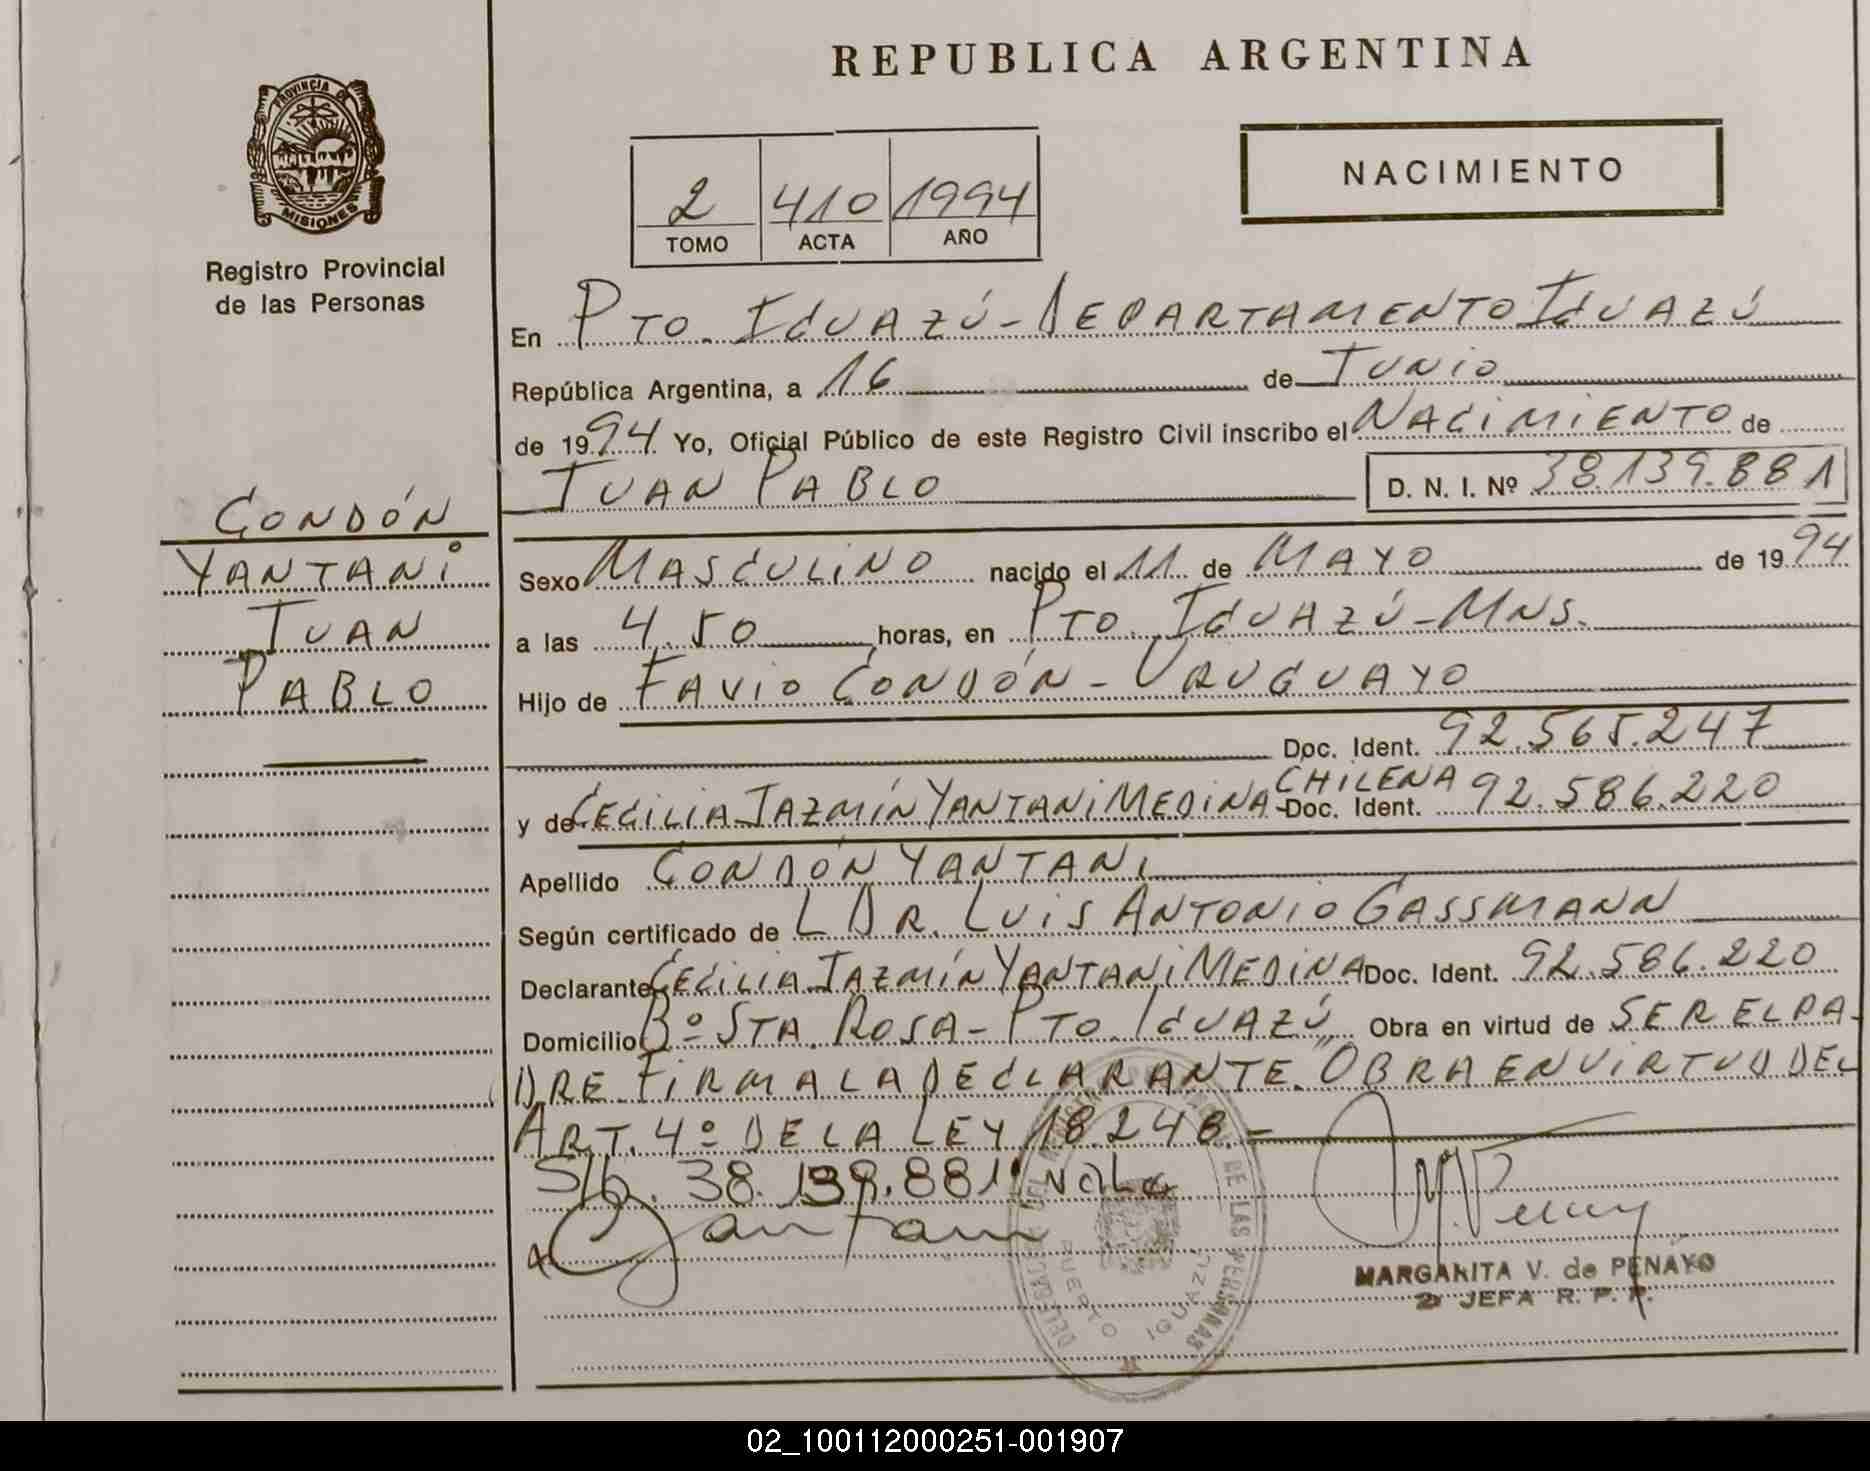 REPUBLICA ARGENTINA
PROVINCIA DE
MISIONES
Registro Provincial
de las Personas
NACIMIENTO
2 410 1994
TOMO ACTA AÑO
En PTO. IGUAZÚ - DEPARTAMENTO IGUAZÚ
República Argentina, a 16 de JUNIO
de 1994 Yo, Oficial Público de este Registro Civil inscribo el NACIMIENTO de
JUAN PABLO D. N. I. Nº 38.139.881
CONDÓN
YANTANI
JUAN
PABLO
Sexo MASCULINO nacido el 11 de MAYO de 1994
a las 4.50 horas, en PTO. IGUAZÚ - MNS.
Hijo de FAVIO CONDÓN - URUGUAYO
Doc. Ident. 92.565.247
y de CECILIA JAZMÍN YANTANI MEDINA - CHILENA Doc. Ident. 92.586.220
Apellido CONDÓN YANTANI
Según certificado de L DR. LUIS ANTONIO GASSMANN
Declarante CECILIA JAZMÍN YANTANI MEDINA Doc. Ident. 92.586.220
Domicilio Bº STA. ROSA - PTO. IGUAZÚ Obra en virtud de SER EL PA-
DRE. FIRMA LA DECLARANTE. "OBRA EN VIRTUD DEL
ART. 4º DE LA LEY 18.248 -
S/b. 38.139.881" Vale
Yantani
M. V. Penay
MARGARITA V. de PENAYO
2ª JEFA R. P. P.
DE LAS PERSONAS
PUERTO IGUAZU
02_100112000251-001907